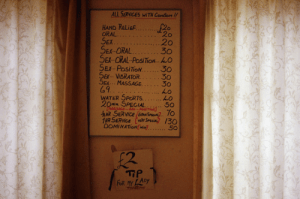 ALL SERVICES WITH CONDOM
HAND RELIEF £20
ORAL 20
SEX 20
SEX-ORAL 30
SEX ORAL-POSITION 40
SEX-POSITION 30
SEX-VIBRATOR 30
SEX MASSAGE 30
69 40
WATER SPORTS 40
20 SPECIAL 50
SERVICE 70
SERVICE 130
DOMINATION 50
£2
TIP
FOR MY LADY